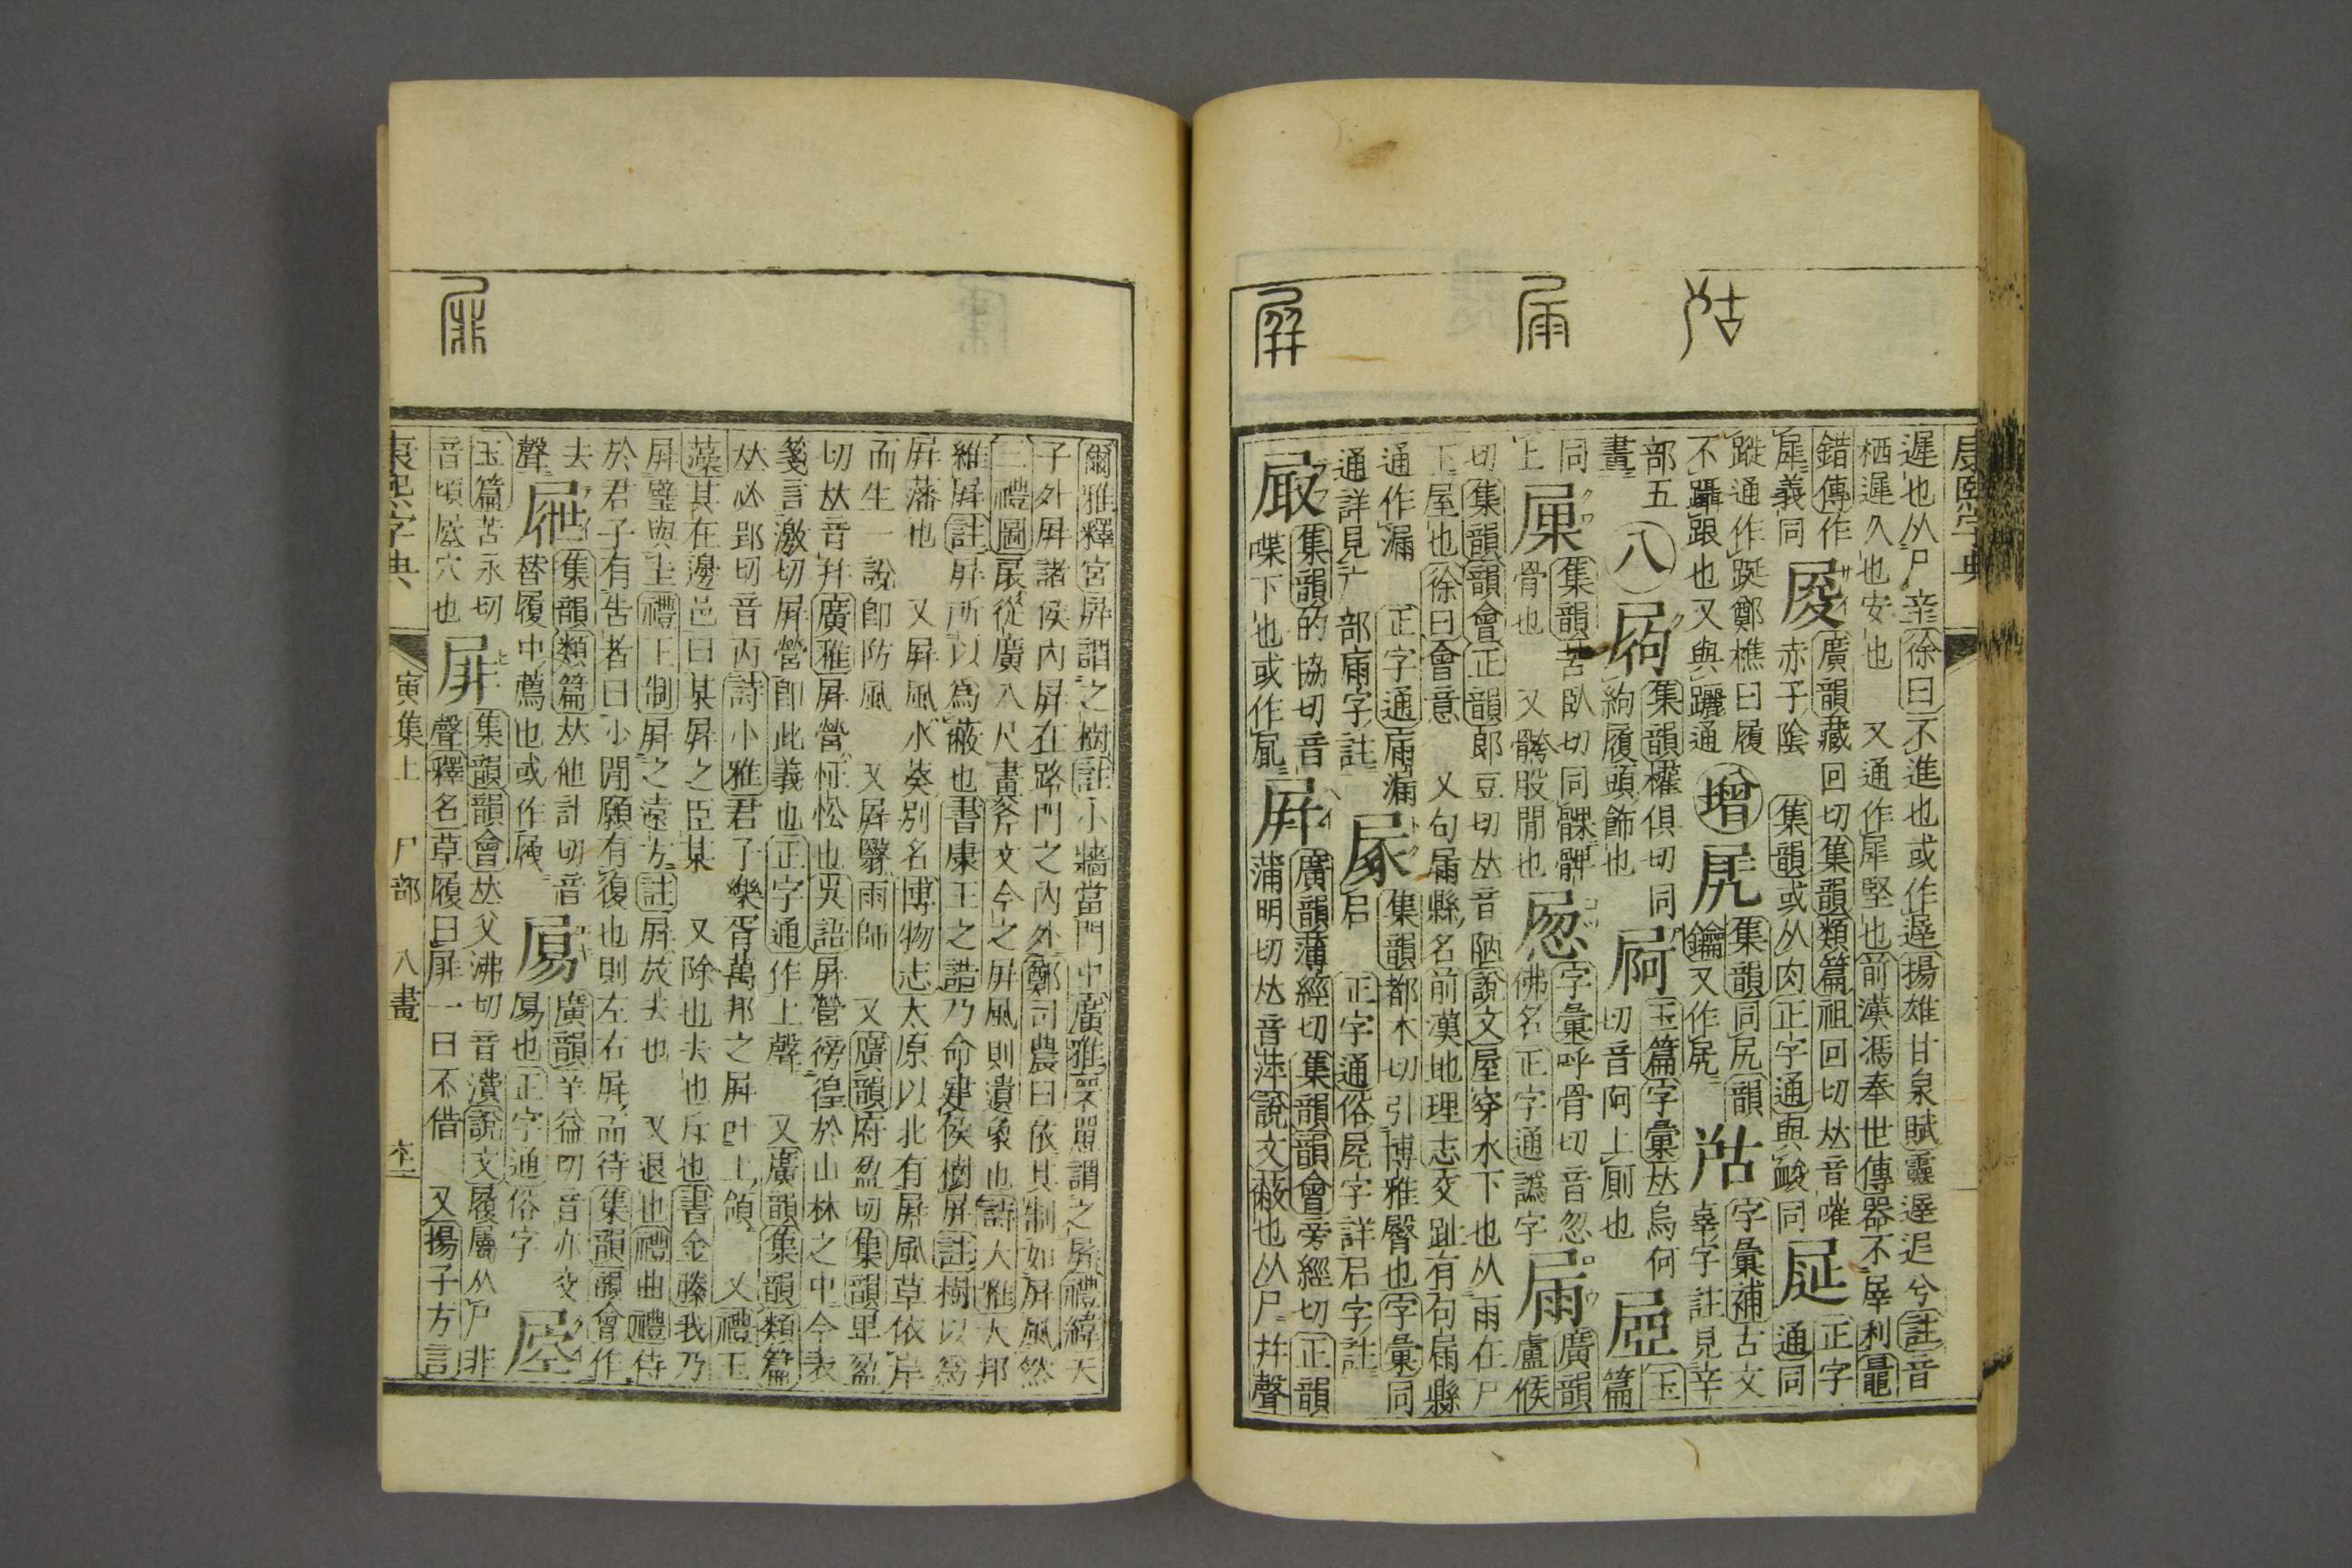 康熙字典
遲也从尸辛徐曰不進也或作遟揚雄甘泉賦靈遟迟兮註音
栖遲久也安也 又通作犀堅也前漢馮奉世傳器不犀利
錯傳作 廣韻藏回切集韻類篇祖回切𠀤音嗺
犀義同 赤子陰 集韻或从肉正字通與朘同
蹤通作跹鄭樵曰履 集韻同尻韻 字彙補古文
不躡跟也又與躧通 增 鑰又作㞍 辜字註見辛
部五 八 集韻權俱切同 玉篇字彙𠀤烏何 玉
畫 絇履頭飾也 切音阿上厠也 篇
同 集韻苦臥切同髁髀 字彙呼骨切音忽 廣韻
上 骨也 又骻股閒也 佛名正字通譌字 屚 盧候
切集韻韻會正韻郎豆切𠀤音陋說文屋穿水下也从雨在尸
下屋也徐曰會意 又句屚縣名前漢地理志交趾有句扇縣
通作漏 正字通屚漏 集韻都木切引博雅臀也字彙同
通詳見广部㢒字註 𡱂 㞘 正字通俗㞘字詳㞘字註
集韻的協切音 屏 廣韻薄經切集韻韻會旁經切正韻
喋下也或作㞕 蒲明切𠀤音萍說文蔽也从尸幷聲
爾雅釋宮屏謂之樹註小牆當門中廣雅罘罳謂之屏禮緯天
子外屏諸侯內屏在路門之內外鄭司農曰依其制如屏風然
三禮圖扆從廣八尺畫斧文今之屏風則遺象也詩大雅大邦
維屏註屏所以爲蔽也書康王之誥乃命建侯樹屏註樹以爲
屏藩也 又屏風水葵別名博物志太原以北有屏風草依岸
而生一說卽防風 又屏翳雨師 又廣韻府盈切集韻𤰞盈
切𠀤音幷廣雅屏營怔忪也吳語屏營徬徨於山林之中今表
箋言激切屏營卽此義也正字通作上聲 又廣韻集韻類篇
𠀤必郢切音丙詩小雅君子樂胥萬邦之屏叶上領 又禮玉
藻其在邊邑曰某屏之臣某 又除也去也斥也書金滕我乃
屏璧與圭禮王制屏之遠方註屏放去也 又退也禮曲禮侍
於君子有告者曰少閒願有復也則左右屏而待集韻韻會作
去 集韻類篇𠀤他計切音 廣韻羊益切音亦
聲 屜 替履中薦也或作屟 㞾 也正字通俗字
玉篇苦永切 集韻韻會𠀤父沸切音㵒說文履屬从尸非
音頃𡱼穴也 屝 聲釋名草履曰屝一曰不借 又揚子方言
康熙字典 寅集上 尸部 八畫